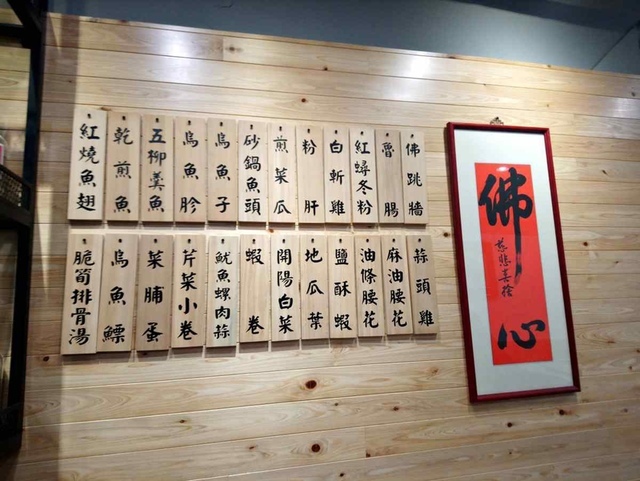 佛跳牆
魯腸
紅蟳冬粉
白斬雞
粉肝
煎菜瓜
砂鍋魚頭
烏魚子
烏魚胗
五柳羹魚
乾煎魚
紅燒魚翅
蒜頭雞
麻油腰花
油條腰花
鹽酥蝦
地瓜葉
開陽白菜
蝦卷
魷魚螺肉蒜
芹菜小卷
菜脯蛋
烏魚鰾
脆筍排骨湯
佛心
慈悲喜捨